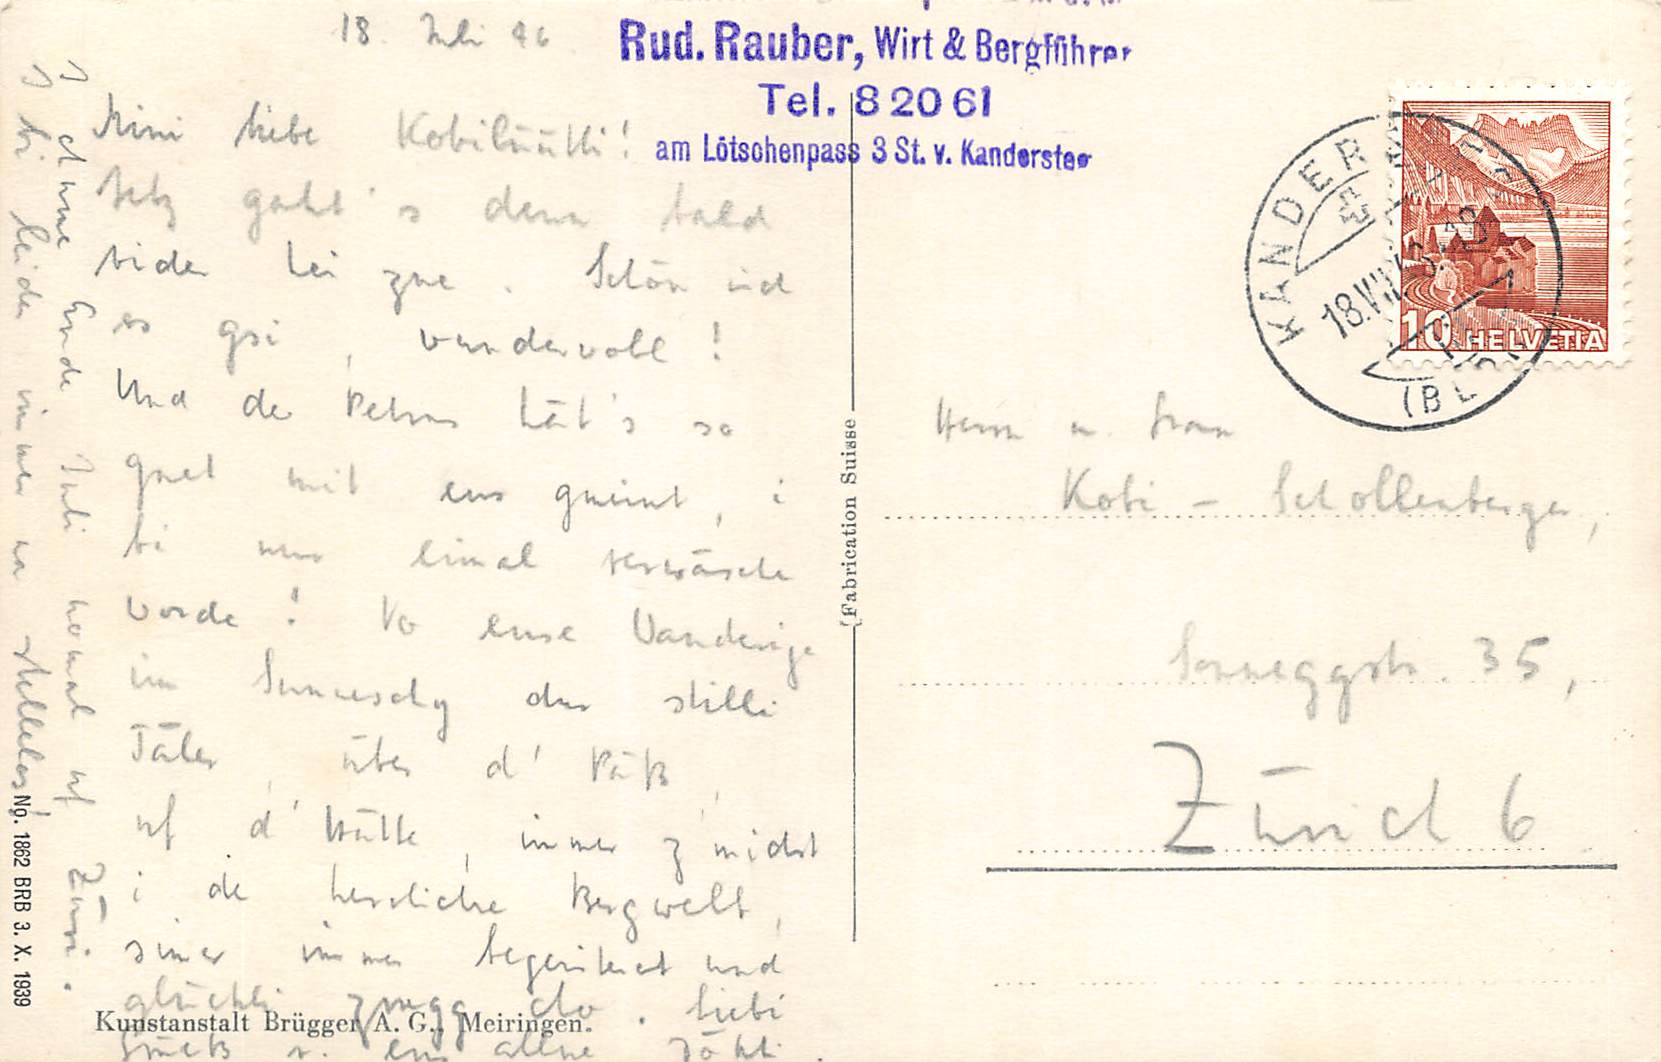 18. Juli 46
Rud. Rauber, Wirt & Bergführer
Tel. 82061
am Lötschenpass 3 St. v. Kandersteg
Mini liebe Kobilüütli!
Jetz gaht's denn bald
wider hei zue. Schön isch
es gsi, wundervoll!
Und de Petrus hät's so
guet mit eus gmeint, i
bi nur eimal verwäsche
worde! Vo euse Wanderige
im Sunneschy dur stilli
Täler, über d' Päss,
uf d' Hütte, immer z'midst
i de herrliche Bergwelt,
simer immer begeisteret und
glückli zrugg cho. Liebi
Grüess v. eus allne
I chume Ende Juli nomal uf Züri.
I bi leider immer no stellelos!
KANDERSTEG
18.VII.46
(BERN)
10 HELVETIA
Herrn u. Frau
Kobi - Schollenberger,
Sonneggstr. 35,
Zürich 6
Fabrication Suisse
No. 1862 BRB 3. X. 1939
Kunstanstalt Brügger A. G., Meiringen.